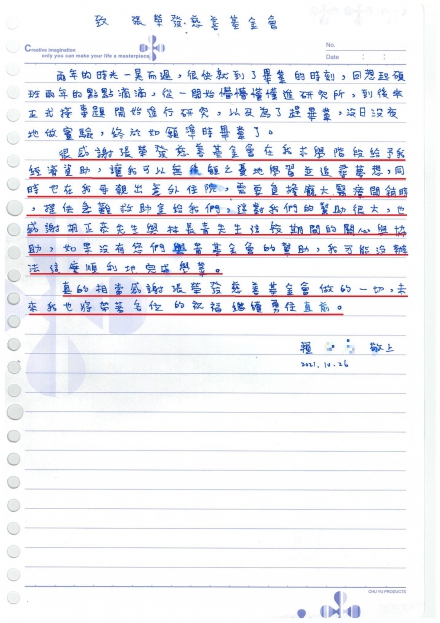 致 張榮發慈善基金會
Creative imagination
only you can make your life a masterpiece
No.
Date : :
兩年的時光一晃而過，很快就到了畢業的時刻，回想起碩
班兩年的點點滴滴，從一開始懵懵懂懂進研究所，到後來
正式接專題開始進行研究，以及為了趕畢業，沒日沒夜
地做實驗，終於如願準時畢業了。
很感謝張榮發慈善基金會在我求學階段給予我
經濟資助，讓我可以無後顧之憂地學習並追尋夢想，同
時也在我母親出意外住院，需要負擔龐大醫療開銷時
，提供急難救助金給我們，這對我們的幫助很大，也
感謝 先生與林長青先生住校期間的關心與協
助，如果沒有您們與貴基金會的幫助，我可能沒辦
法這麼順利地完成學業。
真的相當感謝張榮發慈善基金會做的一切，未
來我也將帶著各位的祝福繼續勇往直前。
敬上
2021.10.26
CHU YU PRODUCTS